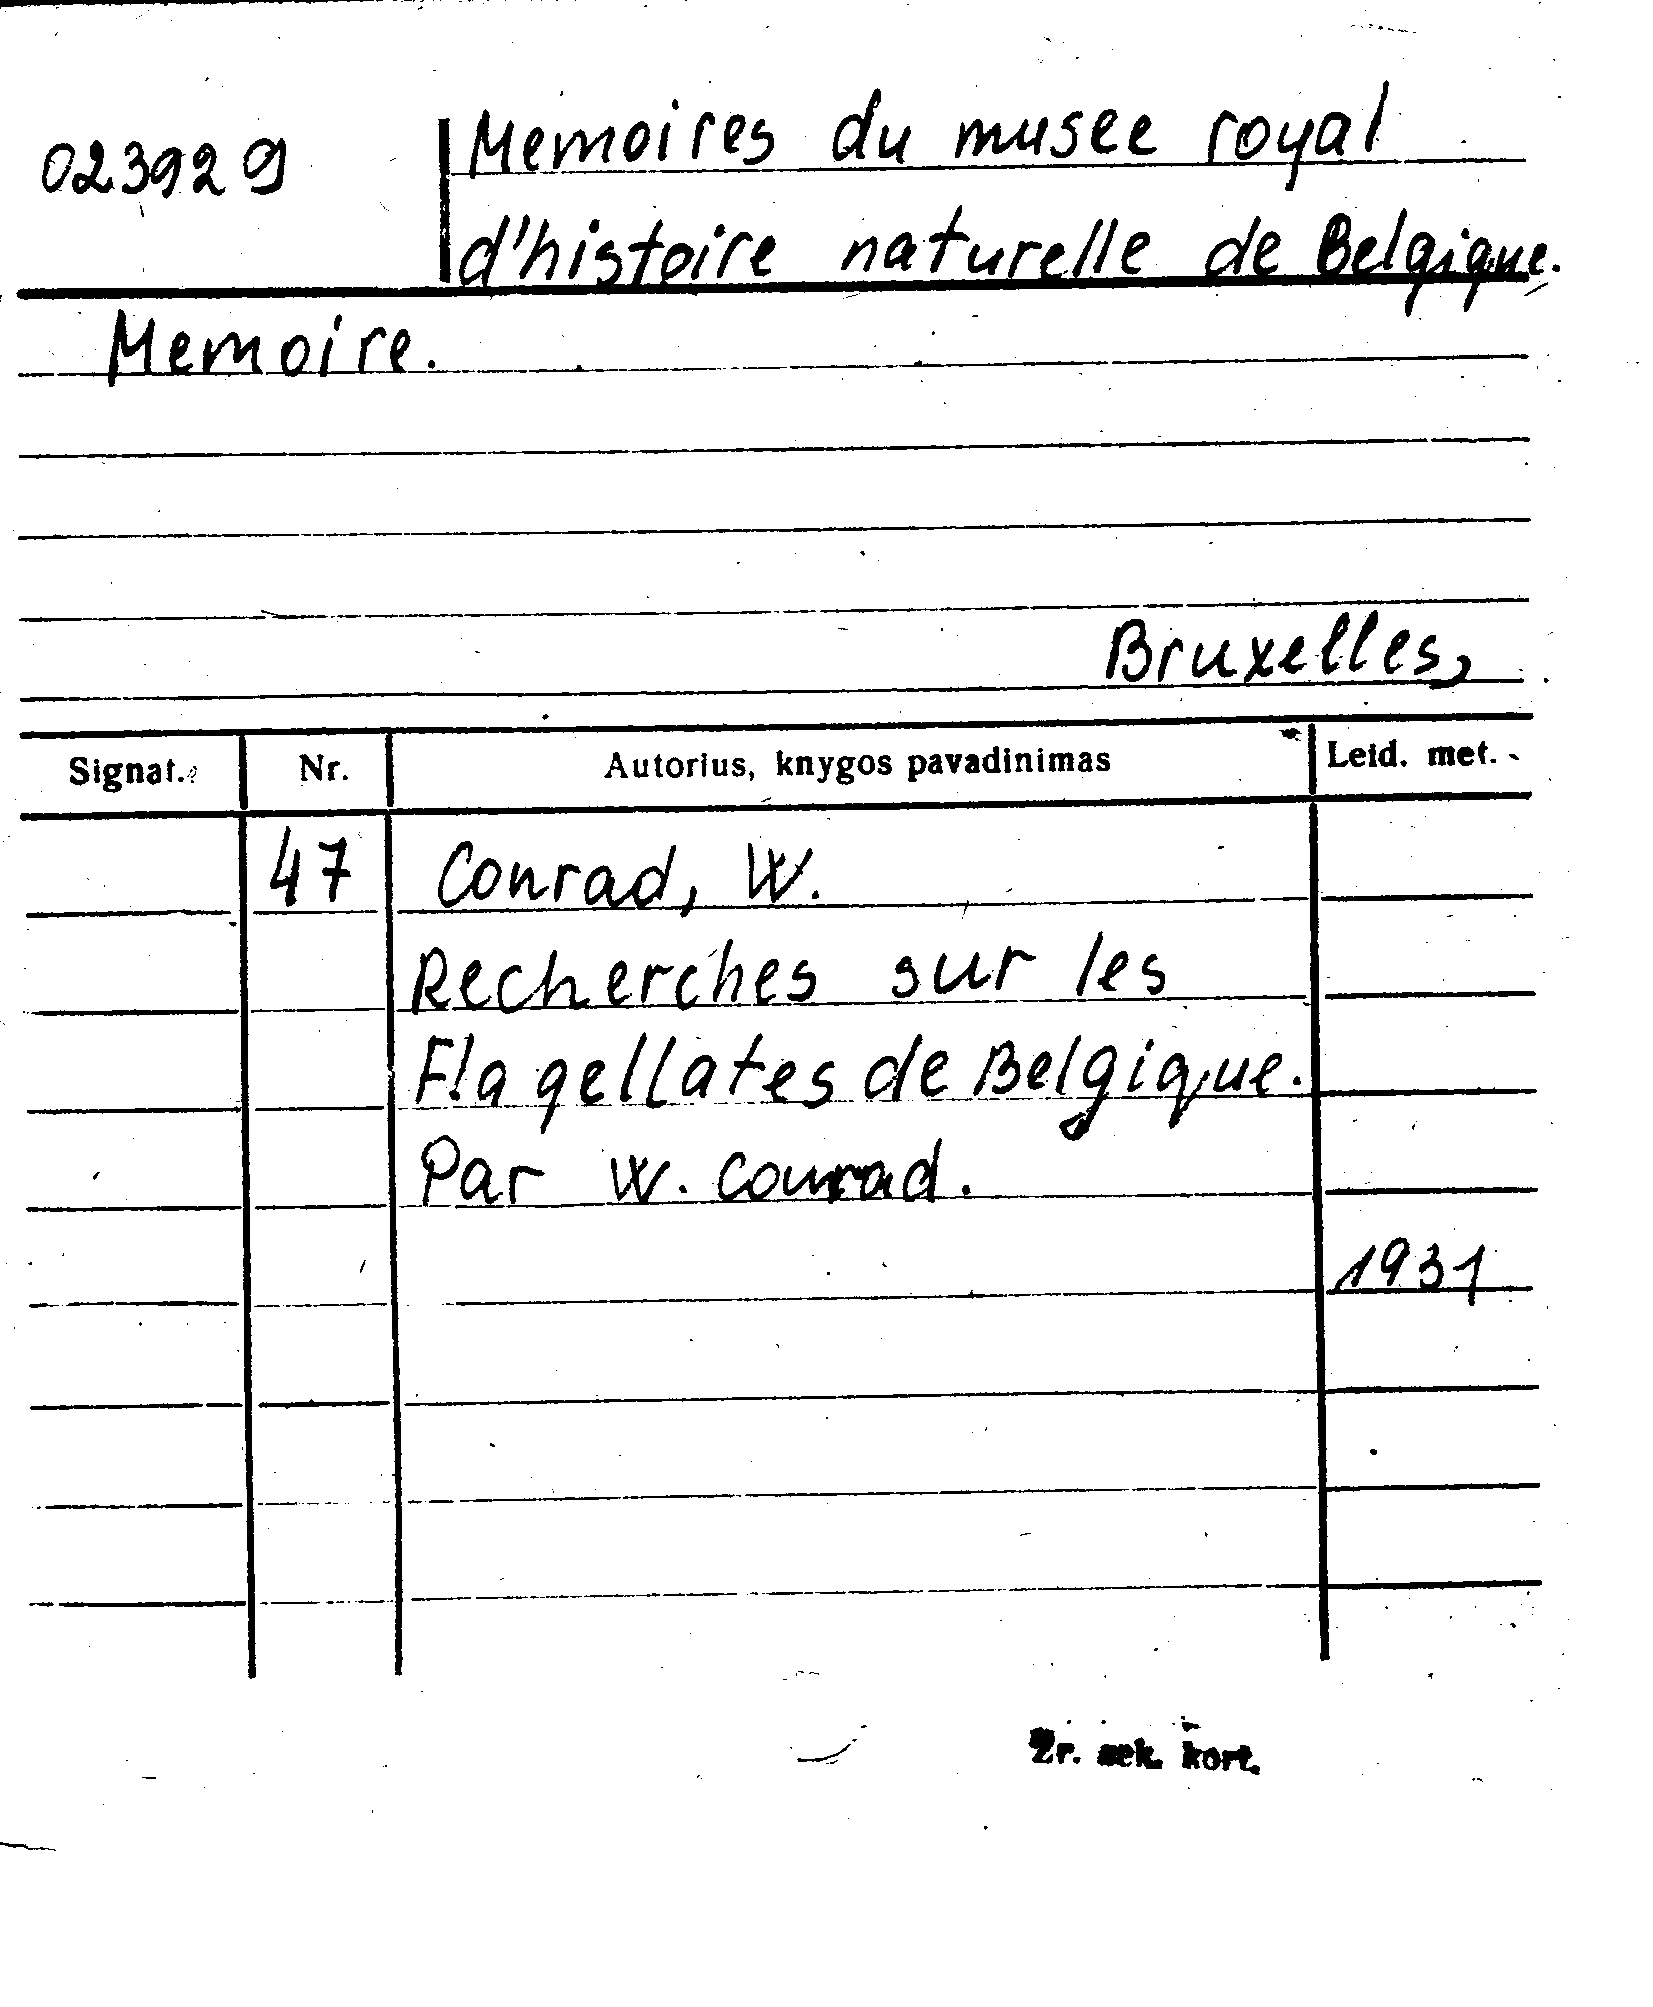 023929
Memoires du musee royal
d'histoire naturelle de Belgique.
Memoire.
Bruxelles,
Signat. Nr. Autorius, knygos pavadinimas Leid. met.
47 Conrad, W.
Recherches sur les
Flagellates de Belgique.
Par W. Conrad.
1931
Žr. sek. kort.